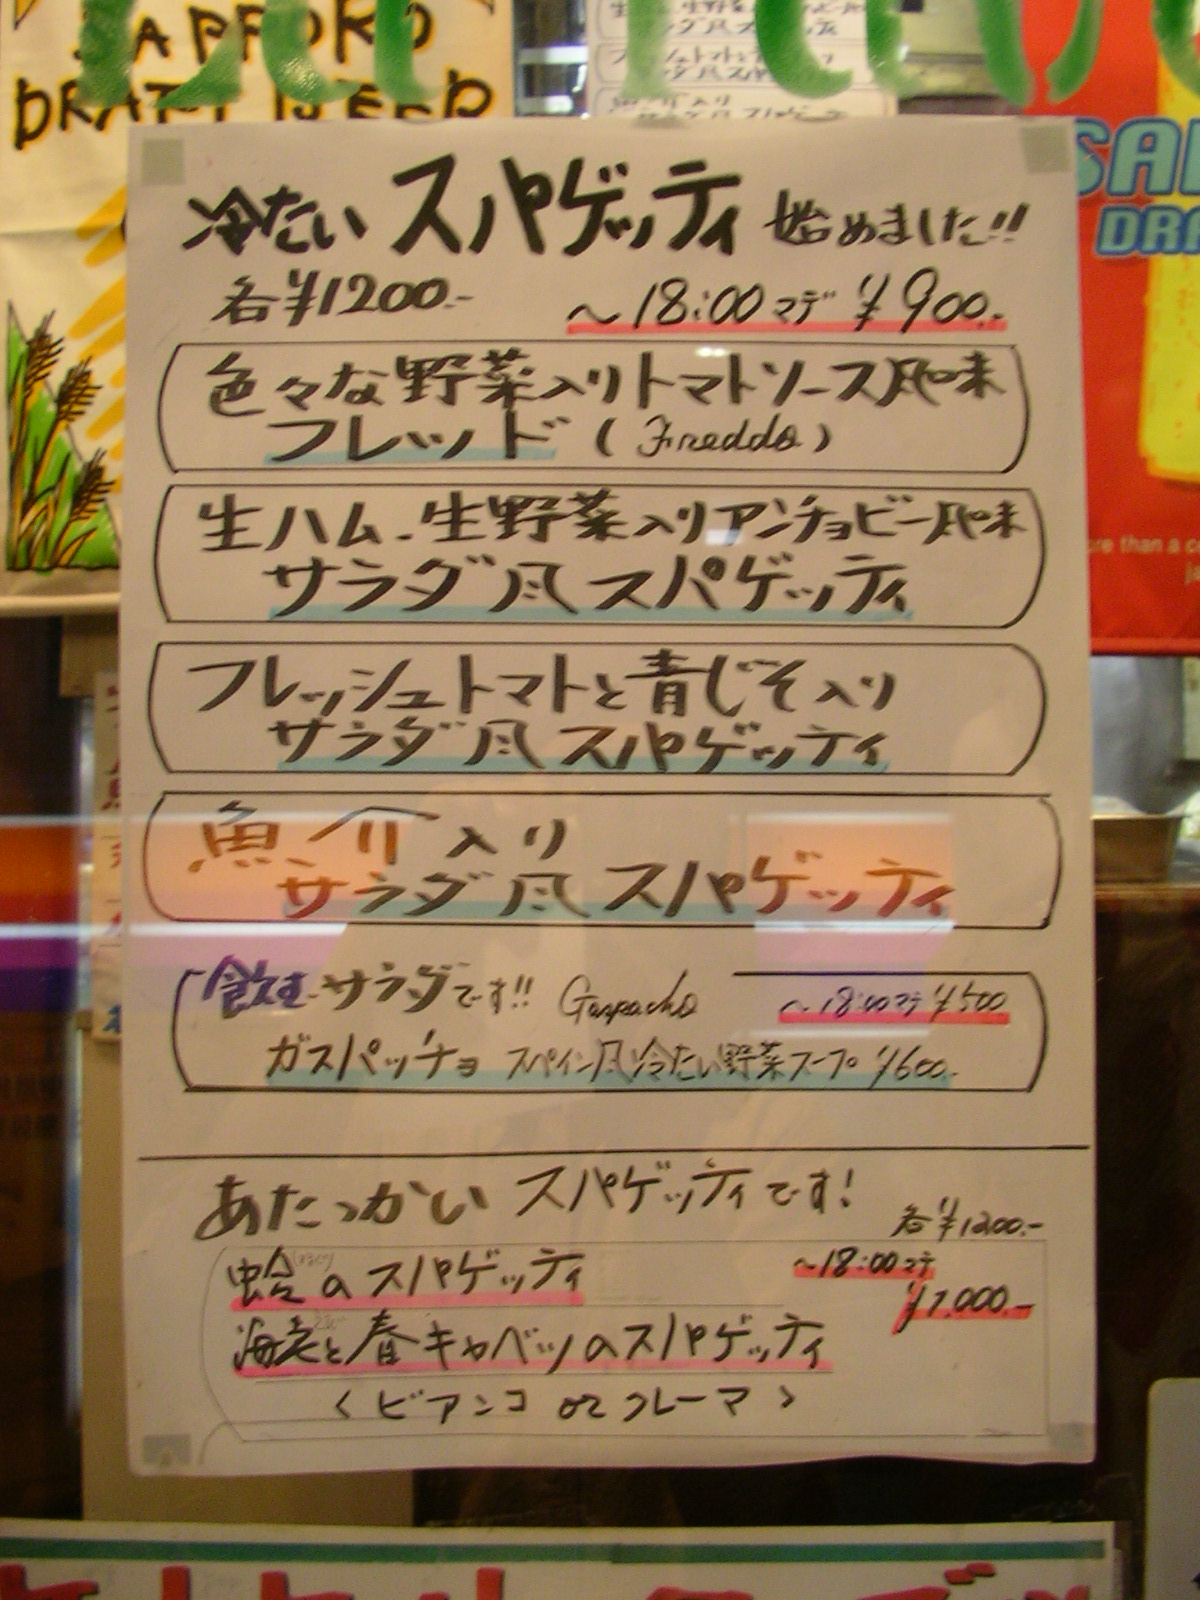 SAPPORO
DRAFT BEER
冷たいスパゲッティ始めました!!
各¥1200.- 〜18:00マデ ¥900.-
色々な野菜入りトマトソース風味
フレッド (Freddo)
生ハム、生野菜入りアンチョビー風味
サラダ風スパゲッティ
フレッシュトマトと青じそ入り
サラダ風スパゲッティ
魚介入り
サラダ風スパゲッティ
飲むサラダです!! Gaspacho 〜18:00マデ ¥500
ガスパッチョ スペイン風冷たい野菜スープ ¥600.-
あたっかいスパゲッティです!
各¥1200.-
蛤のスパゲッティ 〜18:00マデ
¥1,000.-
海老と春キャベツのスパゲッティ
<ビアンコ or クレーマ>
DRA